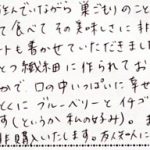 住んでいながら 巣ごもりのこと
て食べて その美味しさに 非
ートも書かせていただきまし
とつ繊細に作られてお
かで、口の中いっぱいに 幸せ
とくに ブルーベリーと イチゴ
す(というか 私の好み)。ま
非購入いたします。友人